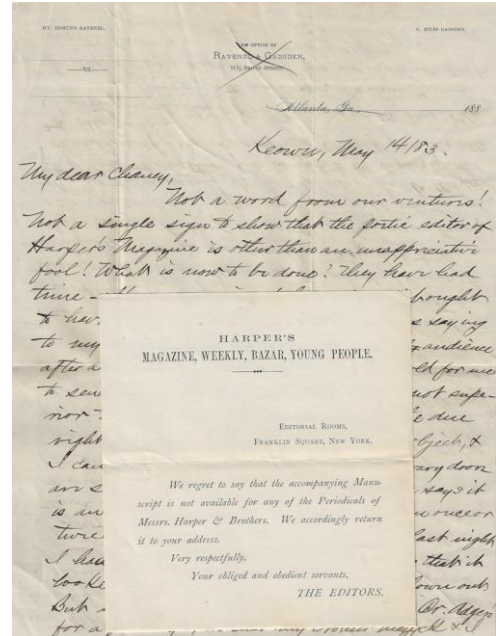 WM. EDMUND RAVENEL.
E. MILES GADSDEN.
LAW OFFICE OF
RAVENEL & GADSDEN,
BROAD STREET.
Atlanta, Ga. 188
Keown, May 14/83.
My dear Chaney,
Not a word from our ventures!
Not a single sign to show that the poetic editor of
Harper's Magazine is other than an unappreciative
fool! What is now to be done? They have had
time
bought
to hav
s saying
to my
audience
after a
ld for me
to sen
not supe-
rior
e due
right
bject, &
I can
ary doom
are s
says it
is an
once or
twice
last night
I had
that it
looke
down out
But
Dr. Adger
for a
& I
HARPER'S
MAGAZINE, WEEKLY, BAZAR, YOUNG PEOPLE.
EDITORIAL ROOMS,
FRANKLIN SQUARE, NEW YORK.
We regret to say that the accompanying Manu-
script is not available for any of the Periodicals of
Messrs. Harper & Brothers. We accordingly return
it to your address.
Very respectfully,
Your obliged and obedient servants,
THE EDITORS.